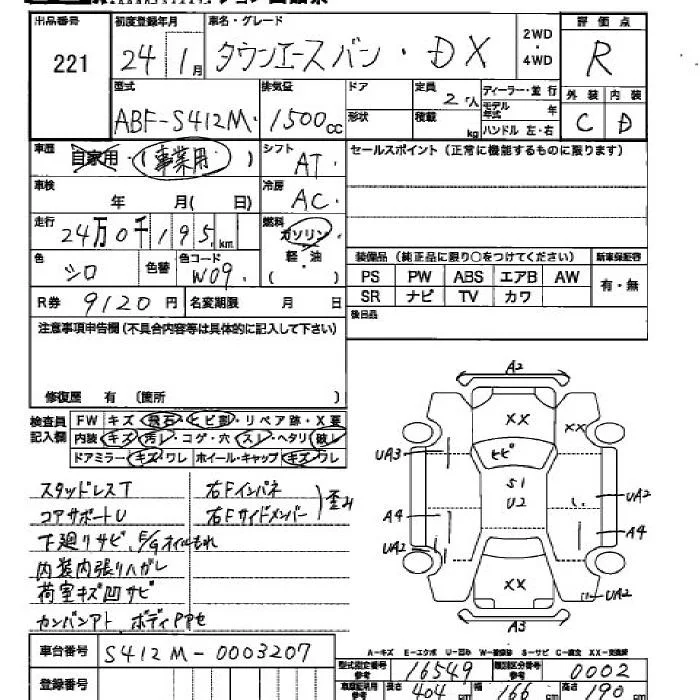 出品番号 221
初度登録年月 24 1月
車名・グレード タウンエースバン・DX
2WD・4WD
評価点 R
型式 ABF-S412M
排気量 1500cc
ドア
形状
定員 2人
積載 kg
ディーラー・並行
モデル年式 年
ハンドル 左・右
外装 内装
C D
車歴 自家用・(事業用)
シフト AT
セールスポイント(正常に機能するものに限ります)
車検 年 月( 日)
冷房 AC
走行 24万0千195km
燃料 ガソリン
軽・油
( )
色 シロ 色替 色コード W09
装備品(純正品に限り○をつけてください) 新車保証書
PS PW ABS エアB AW 有・無
SR ナビ TV カワ
R券 9120円 名変期限 月 日
後日品
注意事項申告欄(不具合内容等は具体的に記入して下さい)
修復歴 有(箇所 )
検査員記入欄
FW キズ・飛石・ヒビ割・リペア跡・X要
内装 キズ・汚レ・コゲ・穴・スレ・ヘタリ・破レ
ドアミラー キズ・ワレ ホイール・キャップ キズ・ワレ
スタッドレスT 右Fインパネ
コアサポートU 右Fサイドメンバー 歪み
下廻りサビ、E/Gオイルもれ
内装内張りハガレ
荷室キズ凹サビ
カンバンアト ボディPPセ
A2
XX XX
UA3 ヒビ
S1
U2 UA2
A4 A4
UA2
XX UA2
A3
A-キズ E-エクボ U-凹み W-補修跡 S-サビ C-腐食 XX-交換済
車台番号 S412M-0003207
型式指定番号参考 16549 類別区分番号参考 0002
登録番号
車庫証明用参考 長さ 404cm 幅 166cm 高さ 190cm